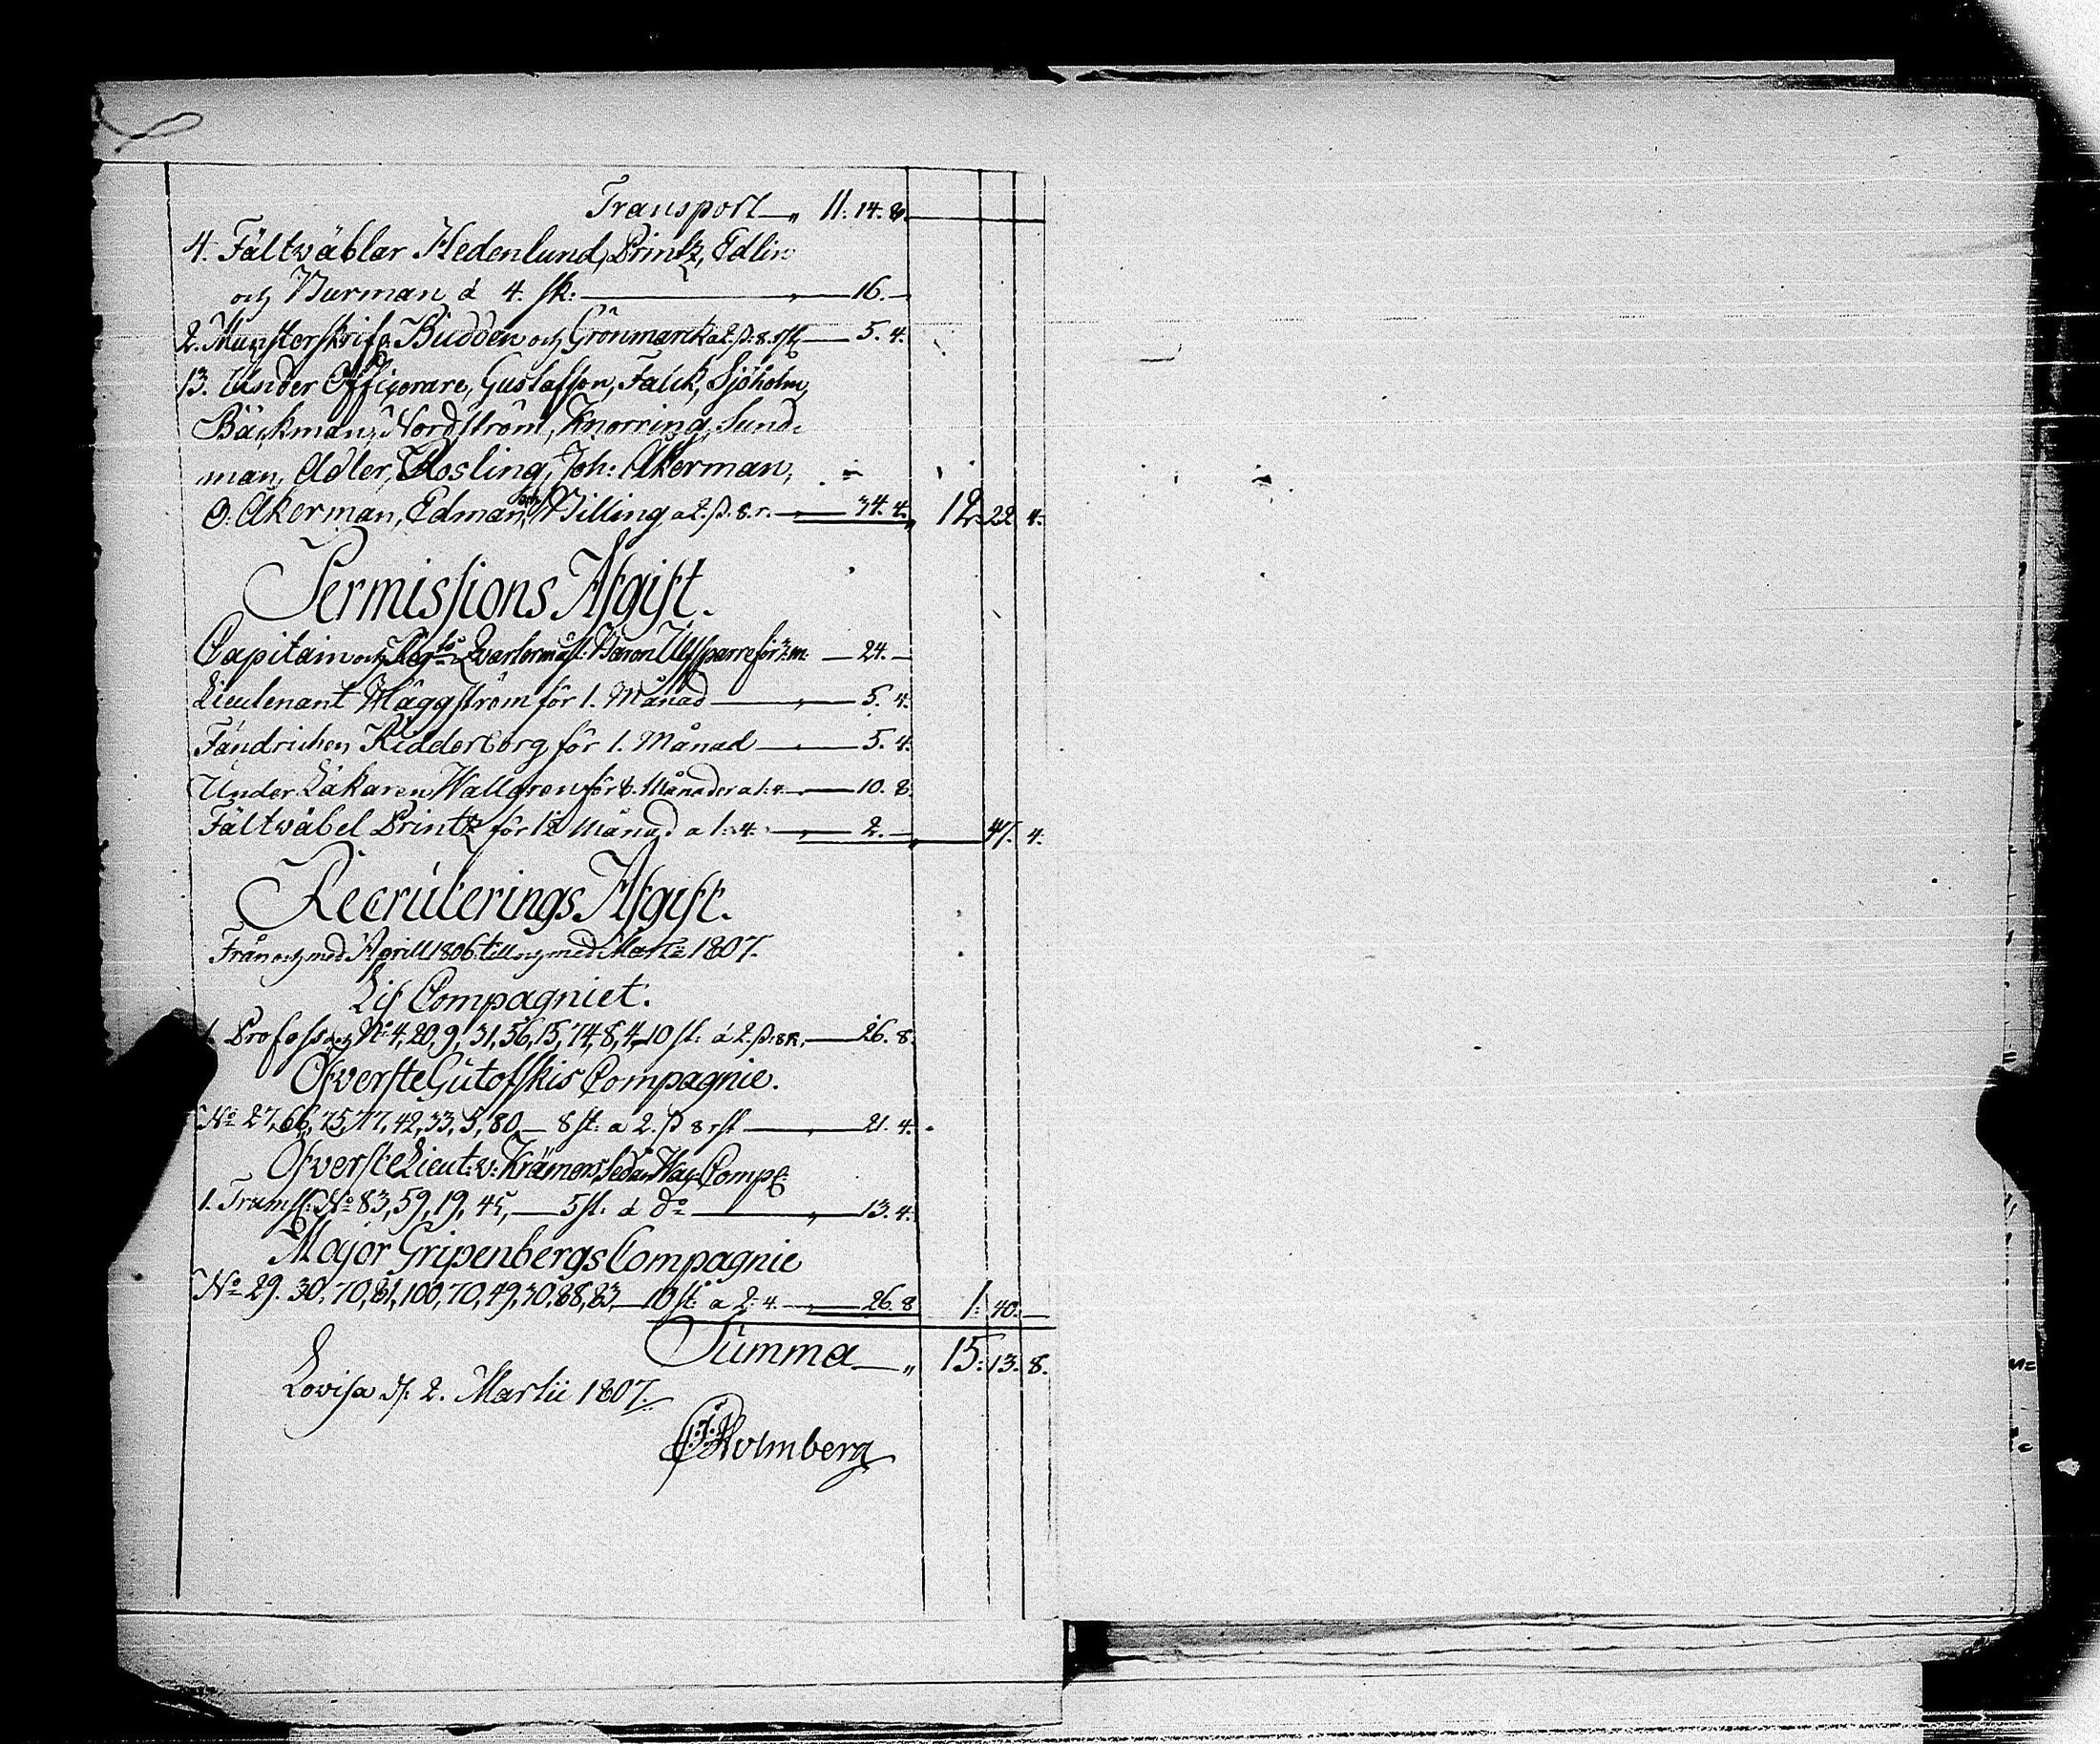 Transport 11. 14. 8.
4. Fältwäblar Hedenlund, Printz, Edlin
och Burman á 4. sk: 16. —
2. Mynsterskrif: Budden och Grönmarck a 2. ß. 8. rst 5. 4.
13. Under Officerare, Gustafson, Falck, Sjöholm,
Bäckman, Nordström, Knorring, Sund-
man, Adler, Rosling, Joh: Åkerman,
O. Åkerman, Edman, och Billing a 2. ß. 8. r. 34. 4. 12. 22 4.
Permissions Afgift.
Capitain och Reg:ts Qvartermäst: Baron Ulfsparre för 3. m: 24. —
Lieutenant Häggström för 1. Månad 5. 4.
Fändrichen Ridderborg för 1. Månad 5. 4.
Under Läkaren Wallgren för 8. Månader a 1: 4. 10. 8.
Fältwäbel Printz för 1½ Månad a 1: 4. 2. — 47. 4.
Recruterings Afgift.
Från och med Aprill 1806. till och med Martii 1807.
Lif Compagniet.
1. Profoss och No 4, 20, 9, 31, 56, 15, 74, 8, 4, 10 st: á 2. ß: 8 R. 26. 8.
Öfverste Gutofskis Compagnie.
No 27, 66, 75, 77, 42, 33, 5, 80, — 8 st: a 2. ß 8 rst 21. 4.
Öfverste Lieut: v: Kræmers ledan Way Comp:
1. Trumsl: No 83, 59, 19, 45, — 5 st. á Do 13. 4.
Major Gripenbergs Compagnie
No 29. 30, 70, 81, 100, 70, 49, 30, 88, 83, — 10 st: a 2: 4. 26. 8 1: 40. —
Summa 15. 13. 8.
Lovisa d. 2. Martii 1807.
Holmberg